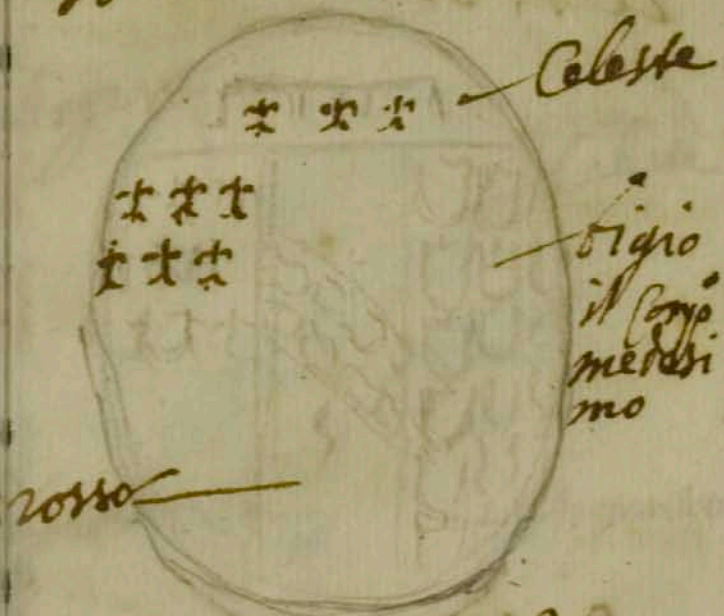 Celeste
bigio
il Corpo
medesi
mo
rosso